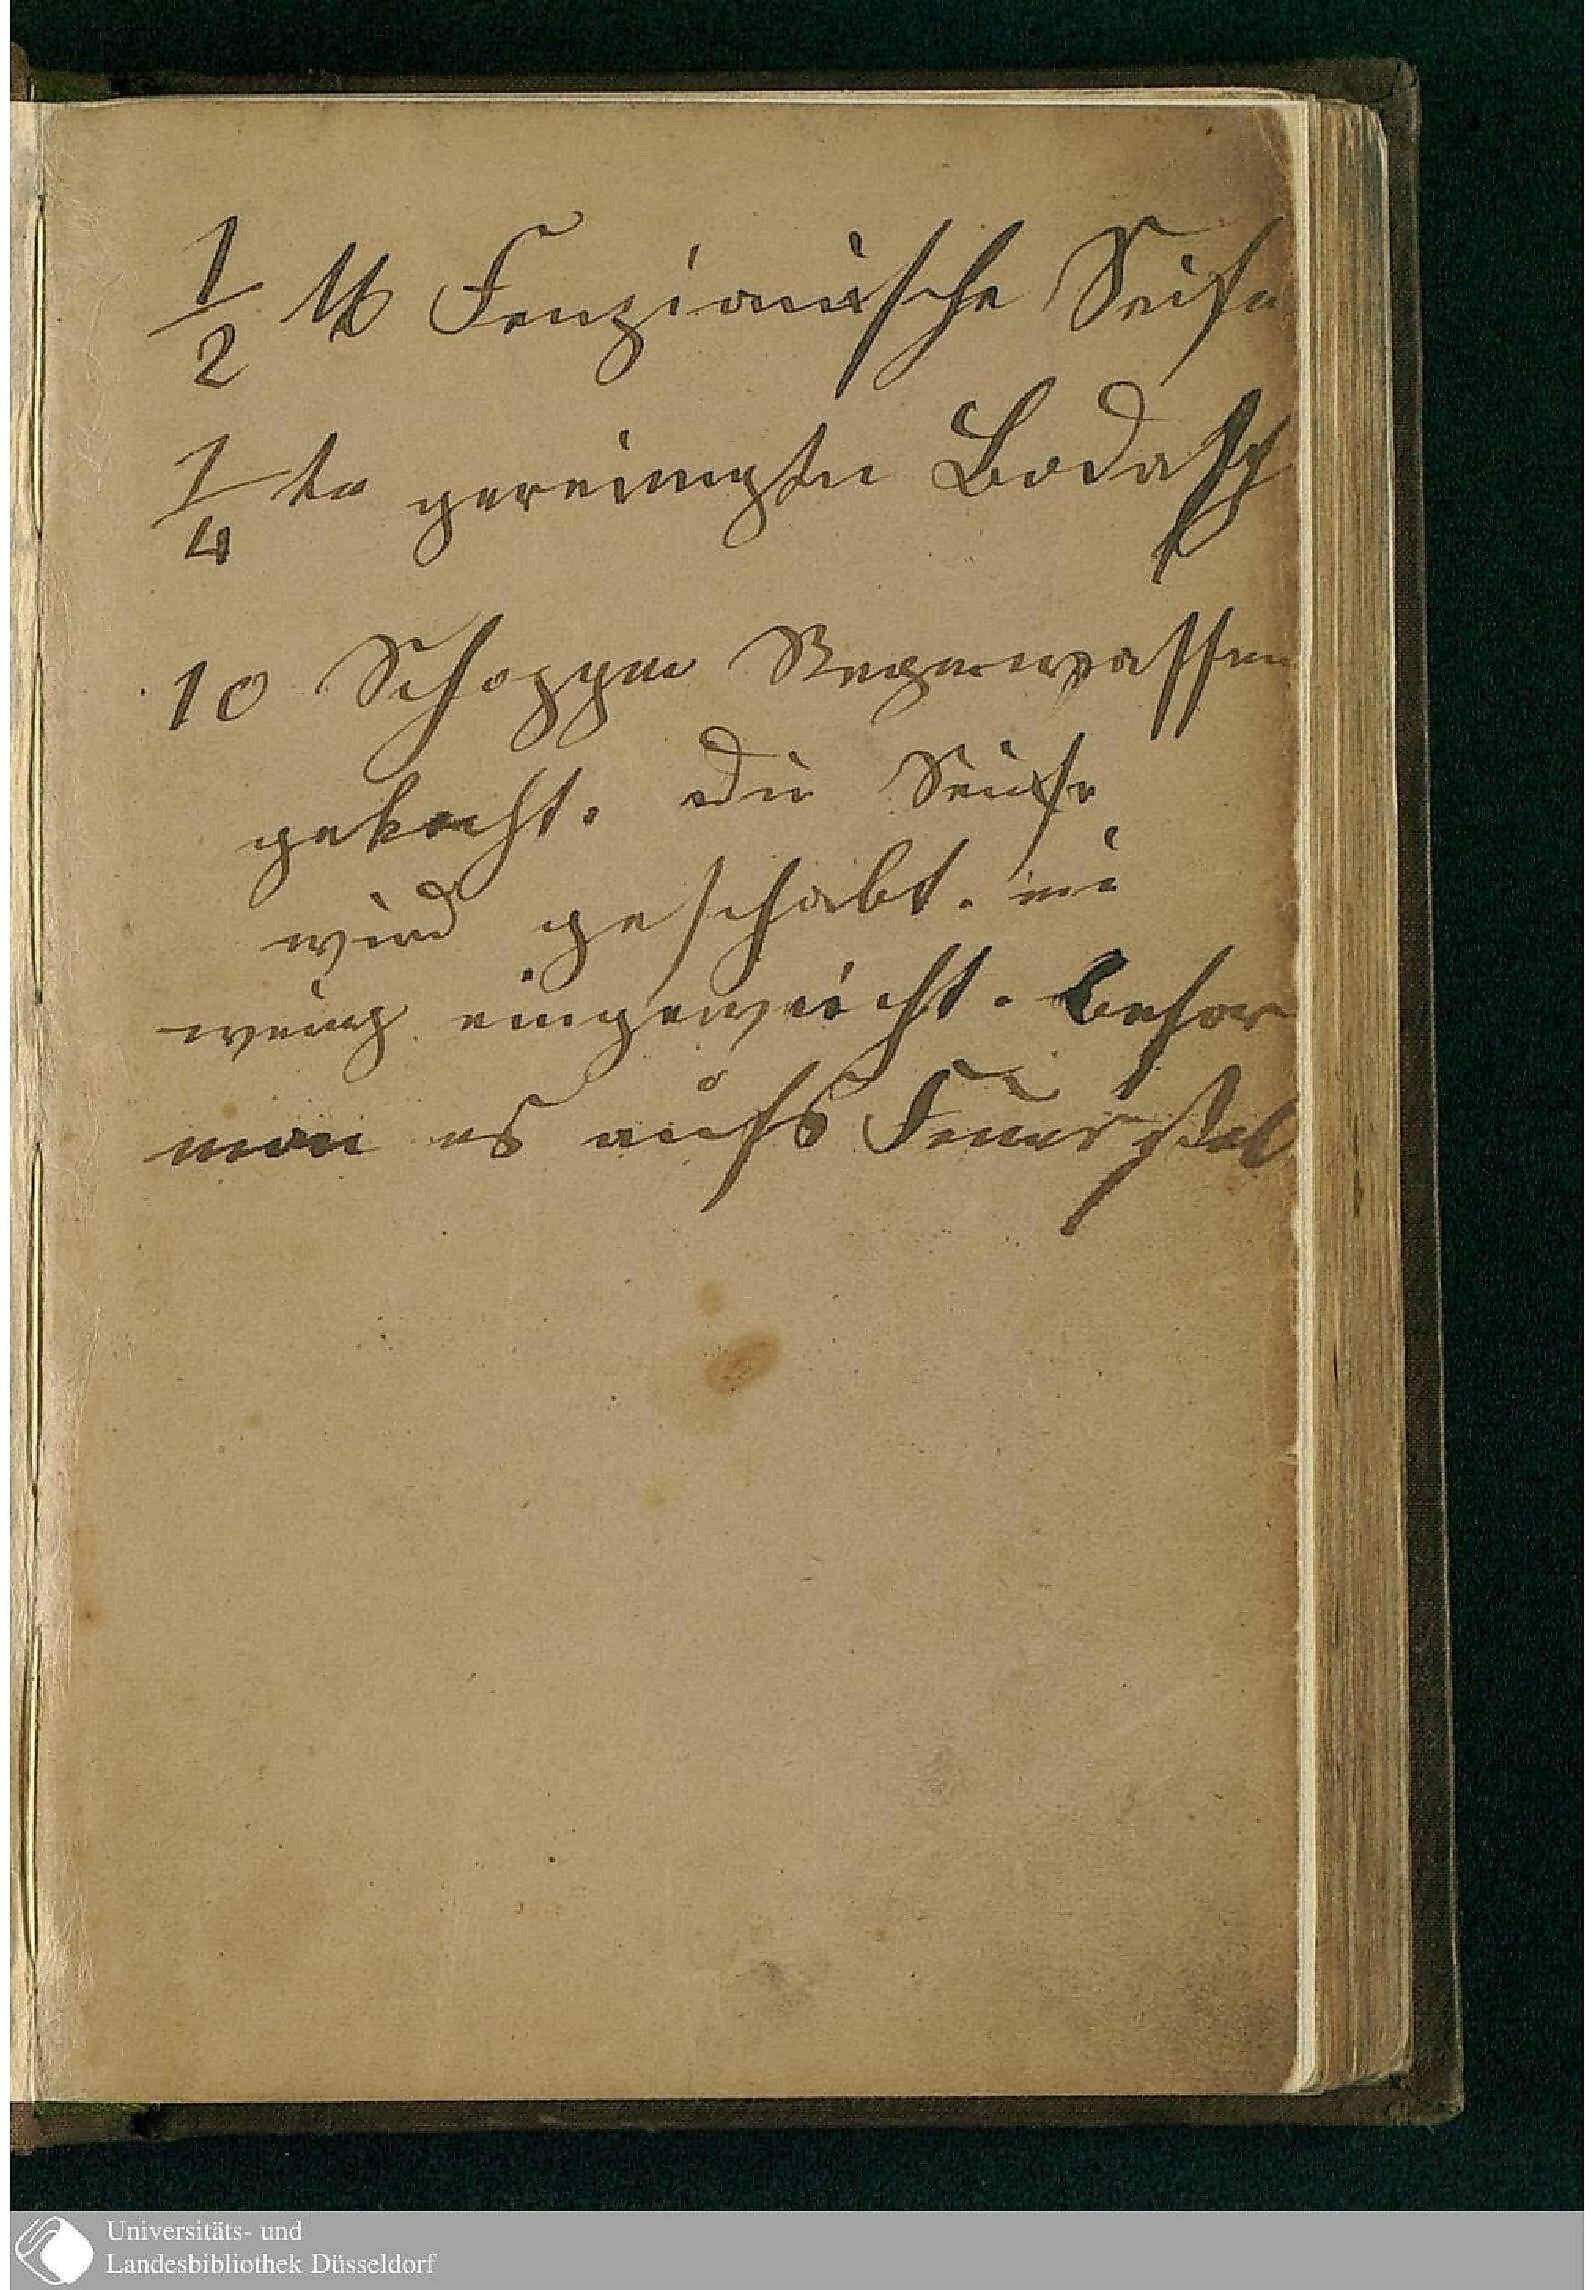 1/2 ℔ Fenzianische Seife
1/4 te gereinigte Bodasch
10 Schoppen Regenwasser
gekocht. die Seife
wird geschabt. ein
wenig eingeweicht. befor
man es aufs Feuer stel
Universitäts- und
Landesbibliothek Düsseldorf